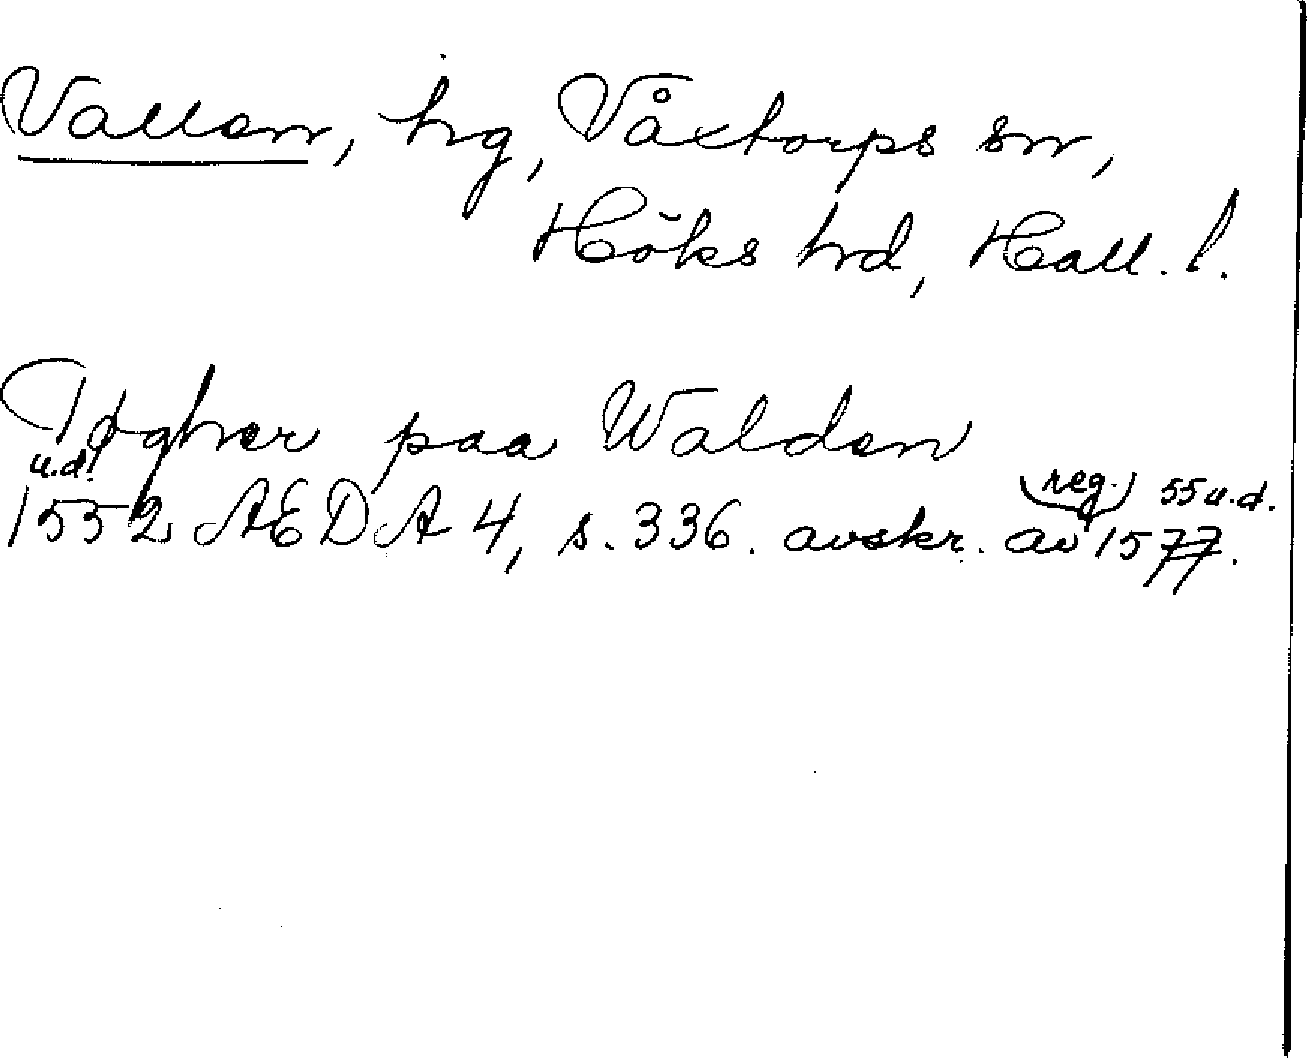 Vallen, hg, Våxtorps sn,
Höks hrd, Hall. l.
Tøgher paa Walden
u.d.
1552 AEDA 4, s. 336. avskr. av (reg.) 1577. 55 u.d.